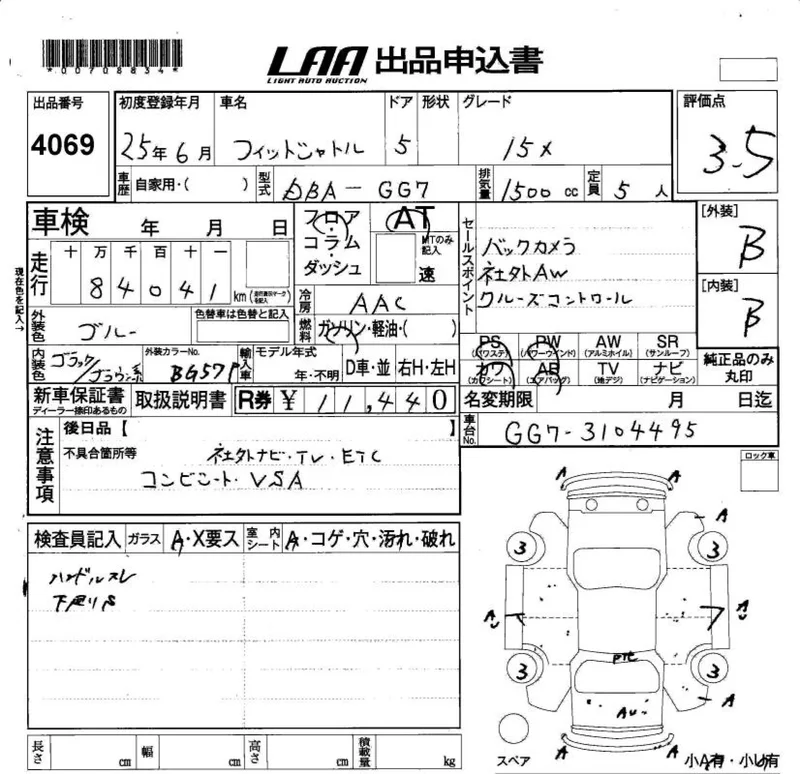 *00708834*
LAA 出品申込書
LIGHT AUTO AUCTION
出品番号 初度登録年月 車名 ドア 形状 グレード 評価点
4069 25年6月 フィットシャトル 5 15X 3.5
車歴 自家用・( ) 型式 DBA-GG7 排気量 1500cc 定員 5人
車検 年 月 日
フロア・コラム・ダッシュ AT MTのみ記入 速
セールスポイント
バックカメラ
社外AW
クルーズコントロール
[外装] B
[内装] B
現在色を記入→
走行 十 万 千 百 十 一
84041 km
冷房 AAC
外装色 ブルー 色替車は色替と記入
燃料 ガソリン・軽油・( )
内装色 ブラック/ブラウン系 外装カラーNo. BG57P 輸入車 モデル年式 年・不明 D車・並 右H・左H
PS (パワステ) PW (パワーウインド) AW (アルミホイル) SR (サンルーフ)
カワ (カワシート) AB (エアバッグ) TV (地デジ) ナビ (ナビゲーション)
純正品のみ丸印
新車保証書 ディーラー捺印あるもの 取扱説明書 R券 ¥11,440
名変期限 月 日迄
車台No. GG7-3104495
注意事項
後日品【 】
不具合箇所等 社外ナビ・TV・ETC
コンビシート・VSA
ロック車
検査員記入 ガラス A・X要ス 室内シート A・コゲ・穴・汚れ・破れ
ハンドルスレ
下廻りS
A A
A
3 3
A A
3 3
A
A A
長さ cm 幅 cm 高さ cm 積載量 kg
スペア
小A有・小U有